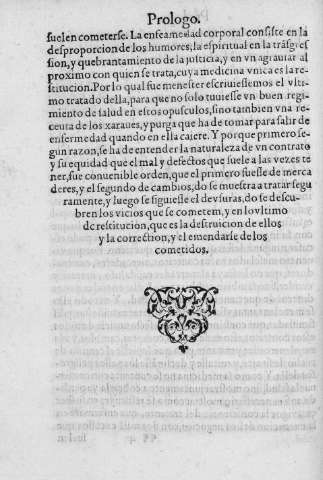 Prologo.
suelen cometerse. La enfermedad corporal consiste en la
desproporcion de los humores, la espiritual en la trãsgres
sion, y quebrantamiento de la justicia, y en vn agrauiar al
proximo con quien se trata, cuya medicina vnica es la re-
stitucion. Por lo qual fue menester escriuiessemos el vlti-
mo tratado della, para que no solo tuuiesse vn buen regi-
miento de salud en estos opusculos, sino tambien vna re-
ceuta de los xaraues, y purga que ha de tomar para salir de
enfermedad quando en ella caiere. Y porque primero se-
gun razon, se ha de entender la naturaleza de vn contrato
y su equidad que el mal y defectos que suele a las vezes te
ner, fue conuenible orden, que el primero fuesse de merca
deres, y el segundo de cambios, do se muestra a tratar segu
ramente, y luego se siguesse el de vsuras, do se descu-
bren los vicios que se cometem, y en lo vltimo
de restitucion, que es la destruicion de ellos
y la correction, y el emendarse de los
cometidos.